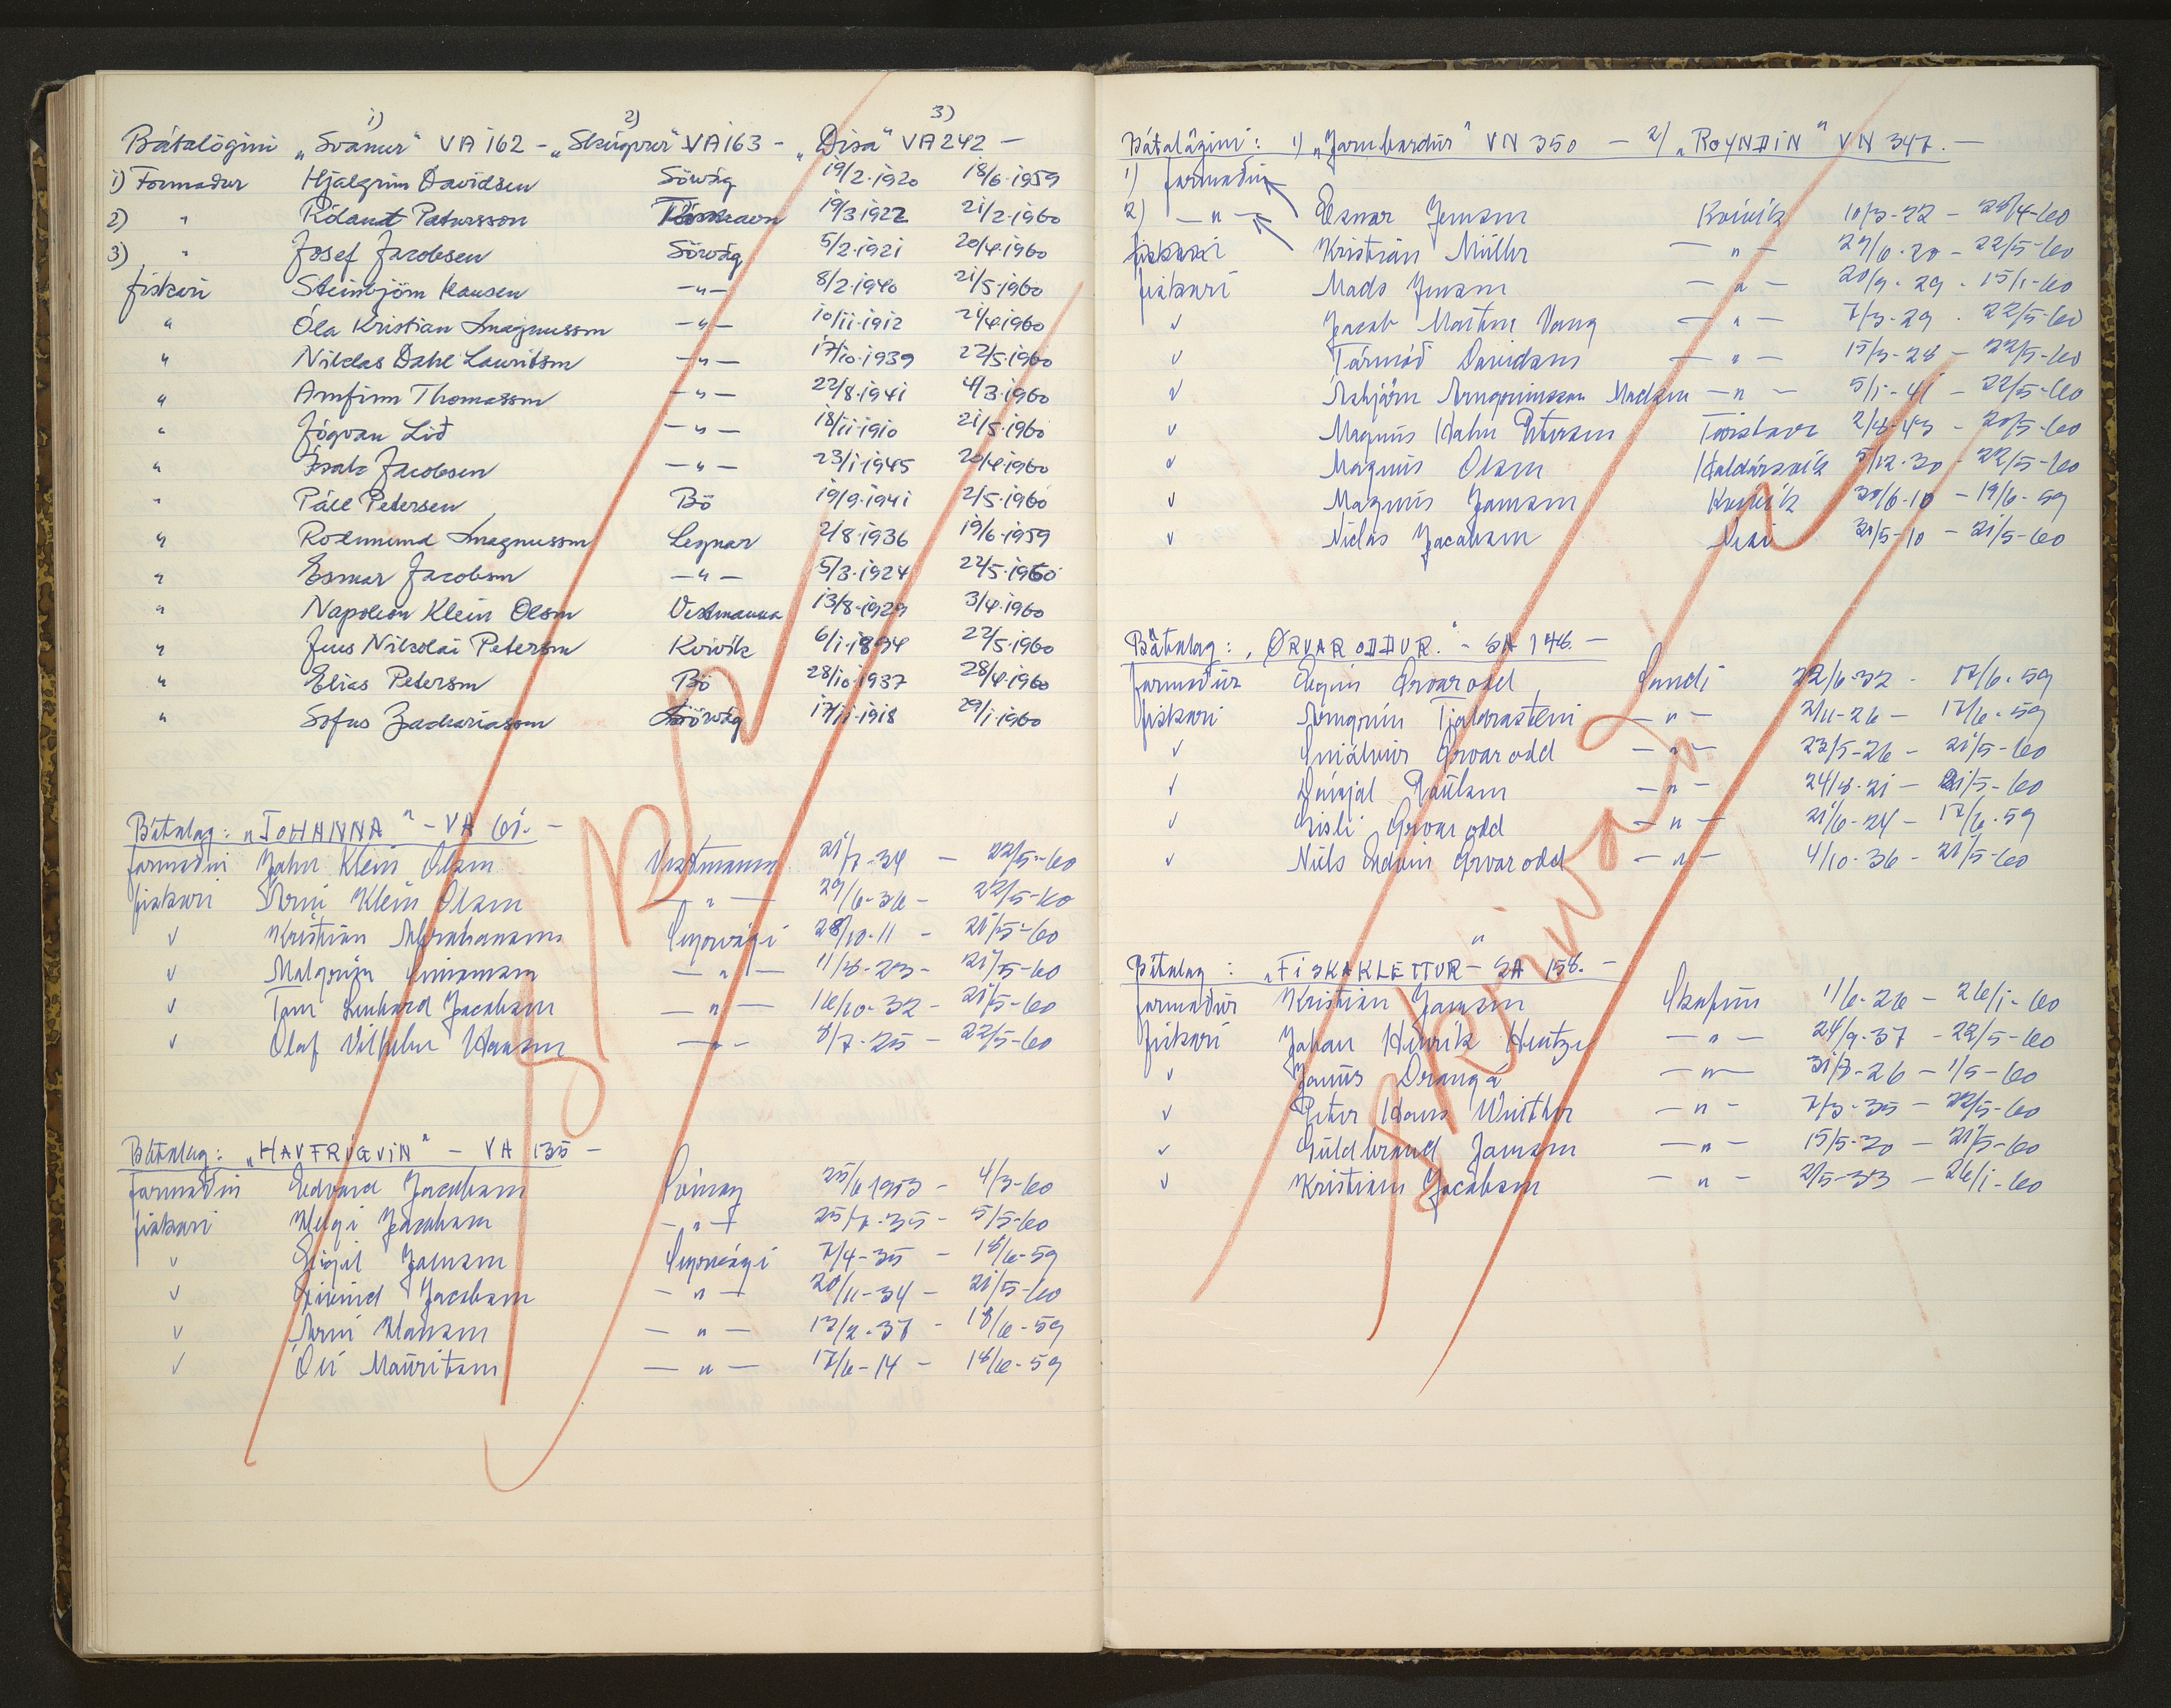 1) 2) 3)
Bátalögini „Svanur“ VA 162 - „Skúgvur“ VA163 - „Disa“ VA242 -
1) Formadur Hjalgrim Davidsen Sörvág 19/2-1920 18/6-1959
2) " Róland Petursson 19/3 1922 21/2-1960
3) " Jósef Jacobsen Sörvág 5/2-1921 20/4-1960
fiskari Steinbjörn Hansen -"- 8/2-1940 21/5-1960
" Óla Kristian Smagnussen -"- 10/11-1912 21/4-1960
" Niklas Dahl Lauritsen -"- 17/10-1939 22/5-1960
" Arnfinn Thomassen -"- 22/8-1941 4/3-1960
" Jógvan Lið -"- 18/11-1910 21/5-1960
" Ísak Jacobsen -"- 23/1-1945 20/4-1960
" Páll Petersen Bö 19/9-1941 2/5-1960
" Rodmund Smagnussen Leynar 2/8-1936 19/6-1959
" Esmar Jacobsen -"- 5/3-1924 22/5-1960
" Napoleon Klein Olsen Vestmanna 13/8-1929 3/4-1960
" Jens Nikolai Petersen Kvivik 6/1-1894 22/5-1960
" Elias Petersen Bö 28/10-1937 28/4-1960
" Sofus Zachariasen Sörvág 17/11-1918 29/1-1960
Bátalag: „JOHANNA“ - VA 61. -
formaðin John Klein Olsen Vestmanna 21/7-34 - 22/5-60
fiskari Árni Klein Olsen - " - 29/6-36 - 22/5-60
v Kristian Abrahamsen 28/10-11 - 21/5-60
v Malgrim - " - 11/8-23 - 21/5-60
v Tom Lenhard Jacobsen - " - 16/10-32 - 21/5-60
v Olaf Vilhelm Hansen - " - 8/7-25 - 22/5-60
Bátalag: „HAVFRÚGVIN“ - VA 135 -
formaðin Edvard Jacobsen 25/6 1913 - 4/3-60
fiskari Helgi Jacobsen - " - 25/7-35 - 5/5-60
v Eigil Joensen 7/4-35 - 18/6-59
v Eivind Jacobsen - " - 20/11-34 - 21/5-60
v Árni Hansen - " - 13/2-37 - 18/6-59
v Óli Mauritsen - " - 17/6-14 - 18/6-59
SNDR
Bátalögini: 1) „Jarnbardur“ VN 350 - 2) „ROYNDIN“ VN 347. -
1) formaðin
2) - " - Esmar Jensen Kvivik 10/3-22 - 28/4-60
fiskari Kristian Müller - " - 27/6-20 - 22/5-60
fiskari Mads Jensen - " - 20/9-29 - 15/1-60
v Jacob Martin Vang - " - 7/3-29 - 22/5-60
v Tarmóð Davidsen - " - 15/3-28 - 22/5-60
v Asbjörn Arngrimsson Madsen - " - 5/1-41 - 22/5-60
v Magnus Hahn Petersen Tórshavn 2/8-43 - 20/5-60
v Magnus Olsen Haldársvík 5/12-30 - 22/5-60
v Magnus Joensen Kvivík 30/6-10 - 19/6-59
v Niclas Jacobsen 31/5-10 - 21/5-60
Bátalag: „ØRVARODDUR.“ - SA 148. -
formaður Örvarodd Sandi 22/6-32 - 17/6-59
fiskari Arngrim Tjaldrasteni - " - 2/11-26 - 17/6-59
v Örvarodd - " - 23/5-26 - 21/5-60
v Dánjal Poulsen - " - 24/8-21 - 21/5-60
v Gisli Örvarodd - " - 21/6-24 - 17/6-59
v Niels Edvin Örvarodd - " - 4/10-36 - 21/5-60
Bátalag: „FISKAKLETTUR“ - SA 158. -
formaður Kristian Joensen Skopun 1/6-26 - 26/1-60
fiskari Johan Henrik Hentze - " - 24/9-37 - 22/5-60
v Janus Drangá - " - 31/7-26 - 1/5-60
v Peter Hans Winther - " - 7/3-35 - 22/5-60
v Guldbrand Joensen - " - 15/5-30 - 21/5-60
v Kristian Jacobsen - " - 2/5-33 - 26/1-60